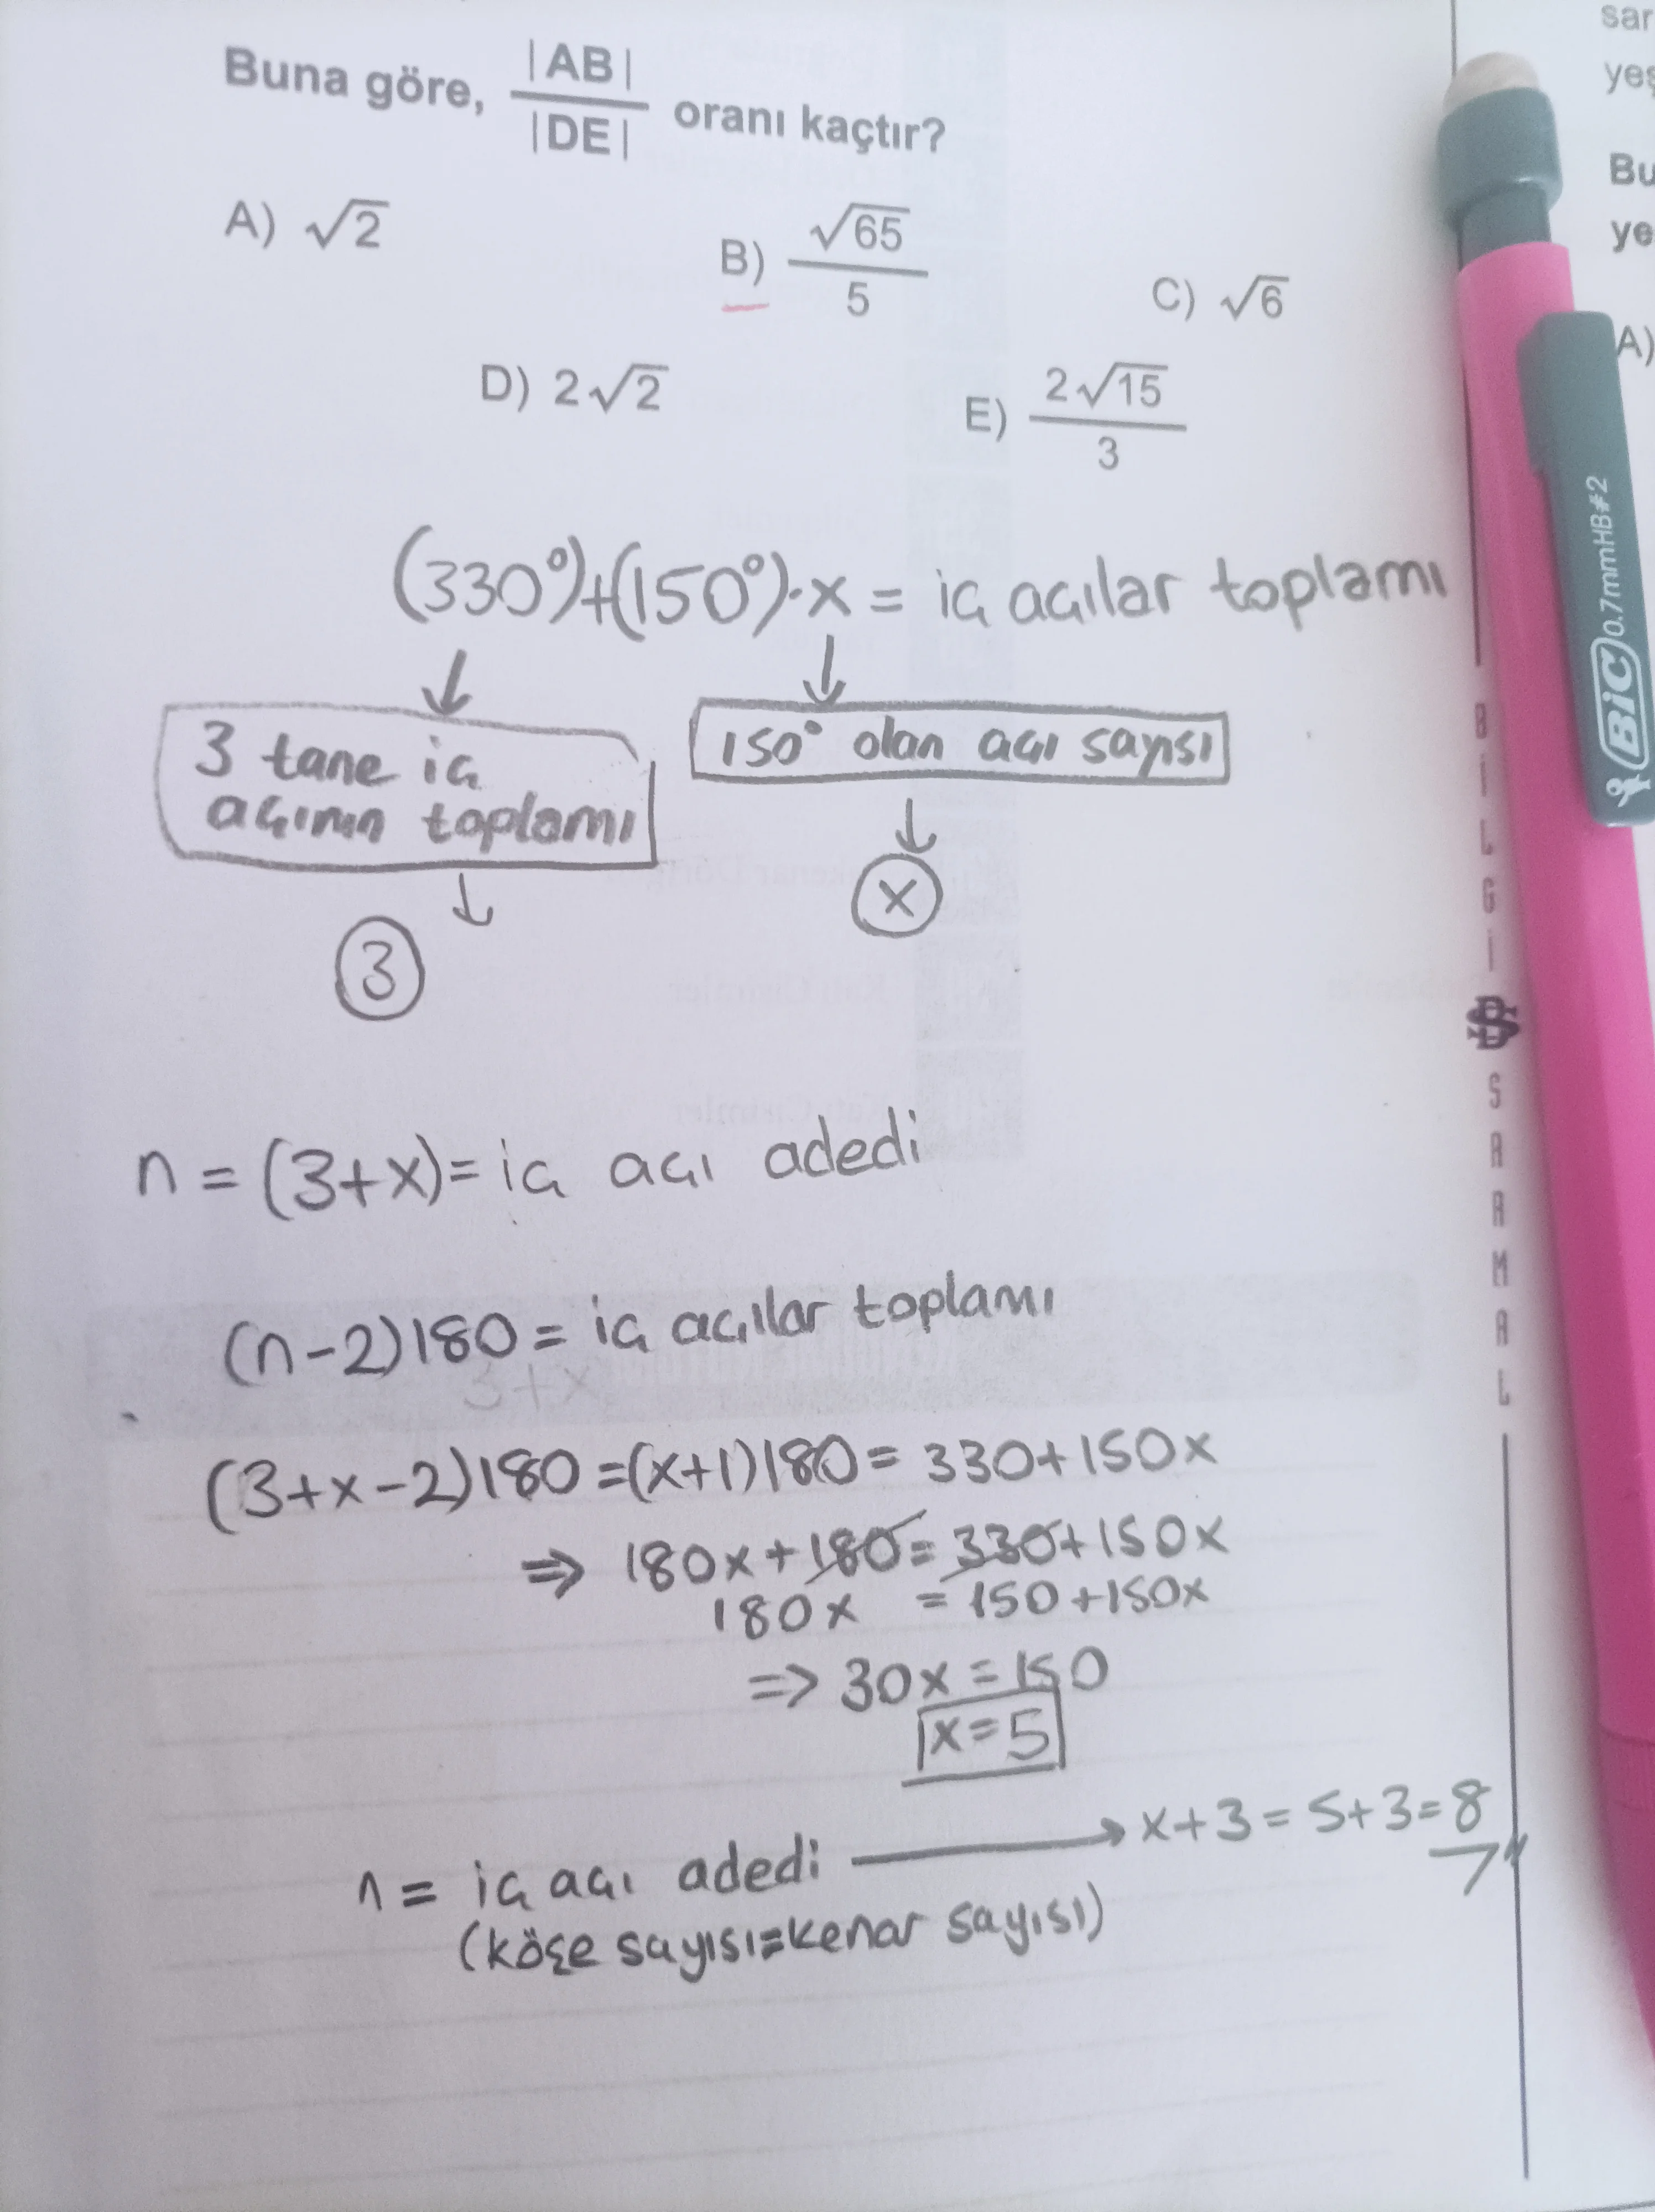 Buna göre, |AB| / |DE| oranı kaçtır?
A) √2
B) √65 / 5
C) √6
D) 2√2
E) 2√15 / 3
(330°)+(150°)·x = iç açılar toplamı
3 tane iç
açının toplamı
150° olan açı sayısı
3
x
n = (3+x) = iç açı adedi
(n-2)180 = iç açılar toplamı
3+x
(3+x-2)180 = (x+1)180 = 330+150x
⇒ 180x+180 = 330+150x
180x = 150+150x
⇒ 30x = 150
x=5
n = iç açı adedi → x+3 = 5+3=8
(köşe sayısı=kenar sayısı)
BİLGİ SARMAL
BiC 0.7mmHB#2
sar
yeş
Bu
ye
A)